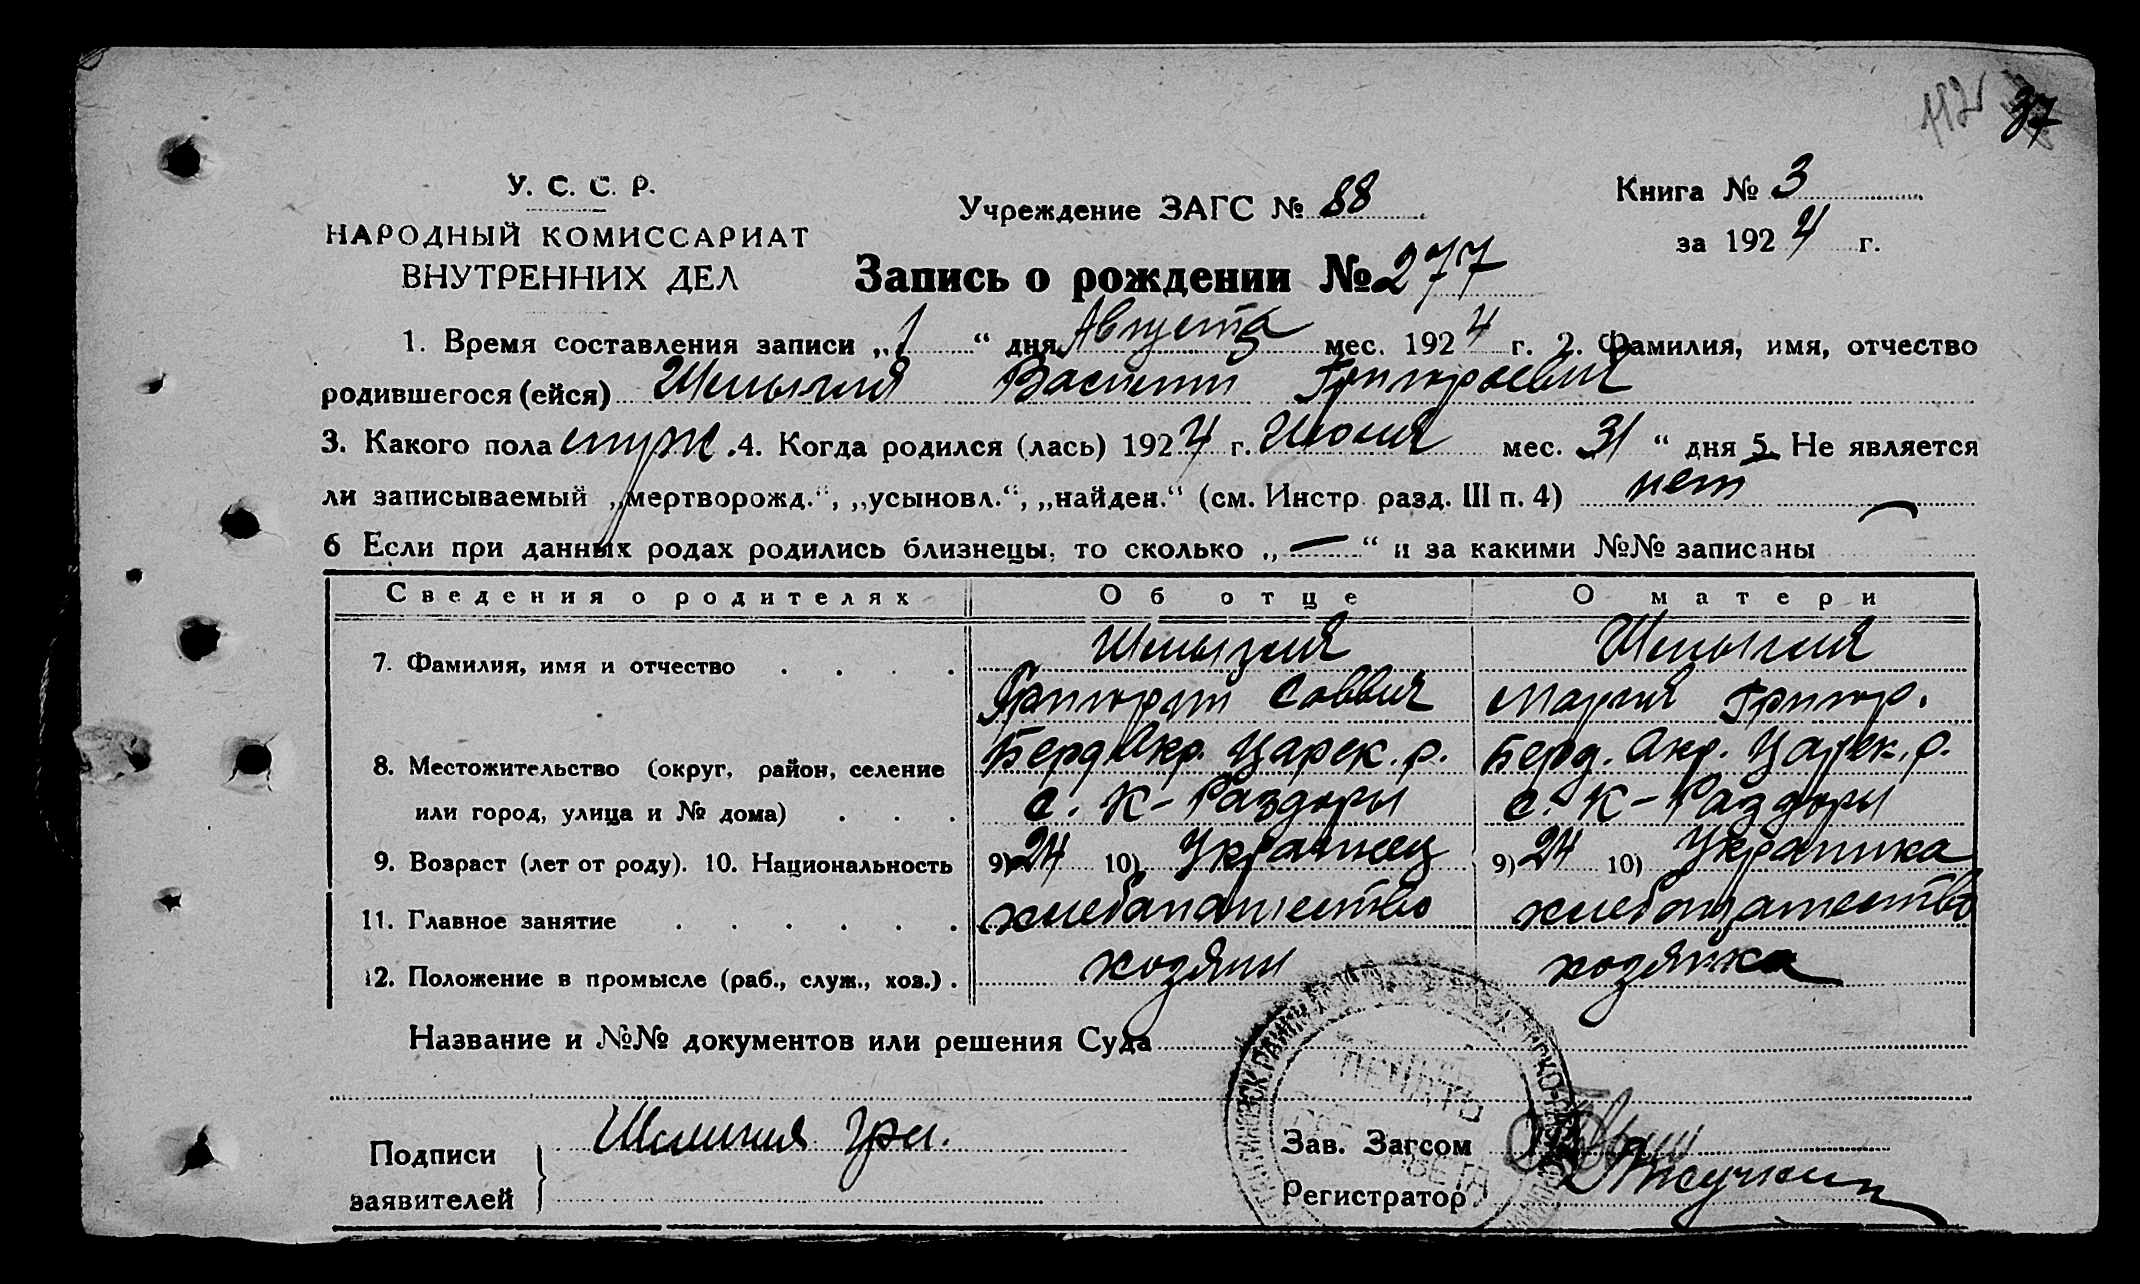 112 37
У. С. С. Р.
НАРОДНЫЙ КОМИССАРИАТ
ВНУТРЕННИХ ДЕЛ
Учреждение ЗАГС № 88
Книга № 3
за 1924 г.
Запись о рождении № 277
1. Время составления записи „1“ дня Августа мес. 1924 г. 2. Фамилия, имя, отчество
родившегося (ейся) Василий Григорьевич
3. Какого пола муж. 4. Когда родился (лась) 1924 г. Июля мес. 31 “ дня 5. Не является
ли записываемый „мертворожд.“, „усыновл.“, „найден.“ (см. Инстр. разд. III п. 4) нет
6 Если при данных родах родились близнецы, то сколько „—“ и за какими №№ записаны —
Сведения о родителях Об отце О матери
7. Фамилия, имя и отчество
Григорий Саввич Мария Григор.
Берд. Окр. Царек. р. Берд. Окр. Царек. р.
8. Местожительство (округ, район, селение
или город, улица и № дома) с. К-Раздоры с. К-Раздоры
9. Возраст (лет от роду). 10. Национальность 9) 24 10) Украинец 9) 24 10) Украинка
11. Главное занятие хлебопашество хлебопашество
12. Положение в промысле (раб., служ., хоз.) хозяин хозяйка
Название и №№ документов или решения Суда
Подписи
заявителей
Зав. Загсом
Регистратор